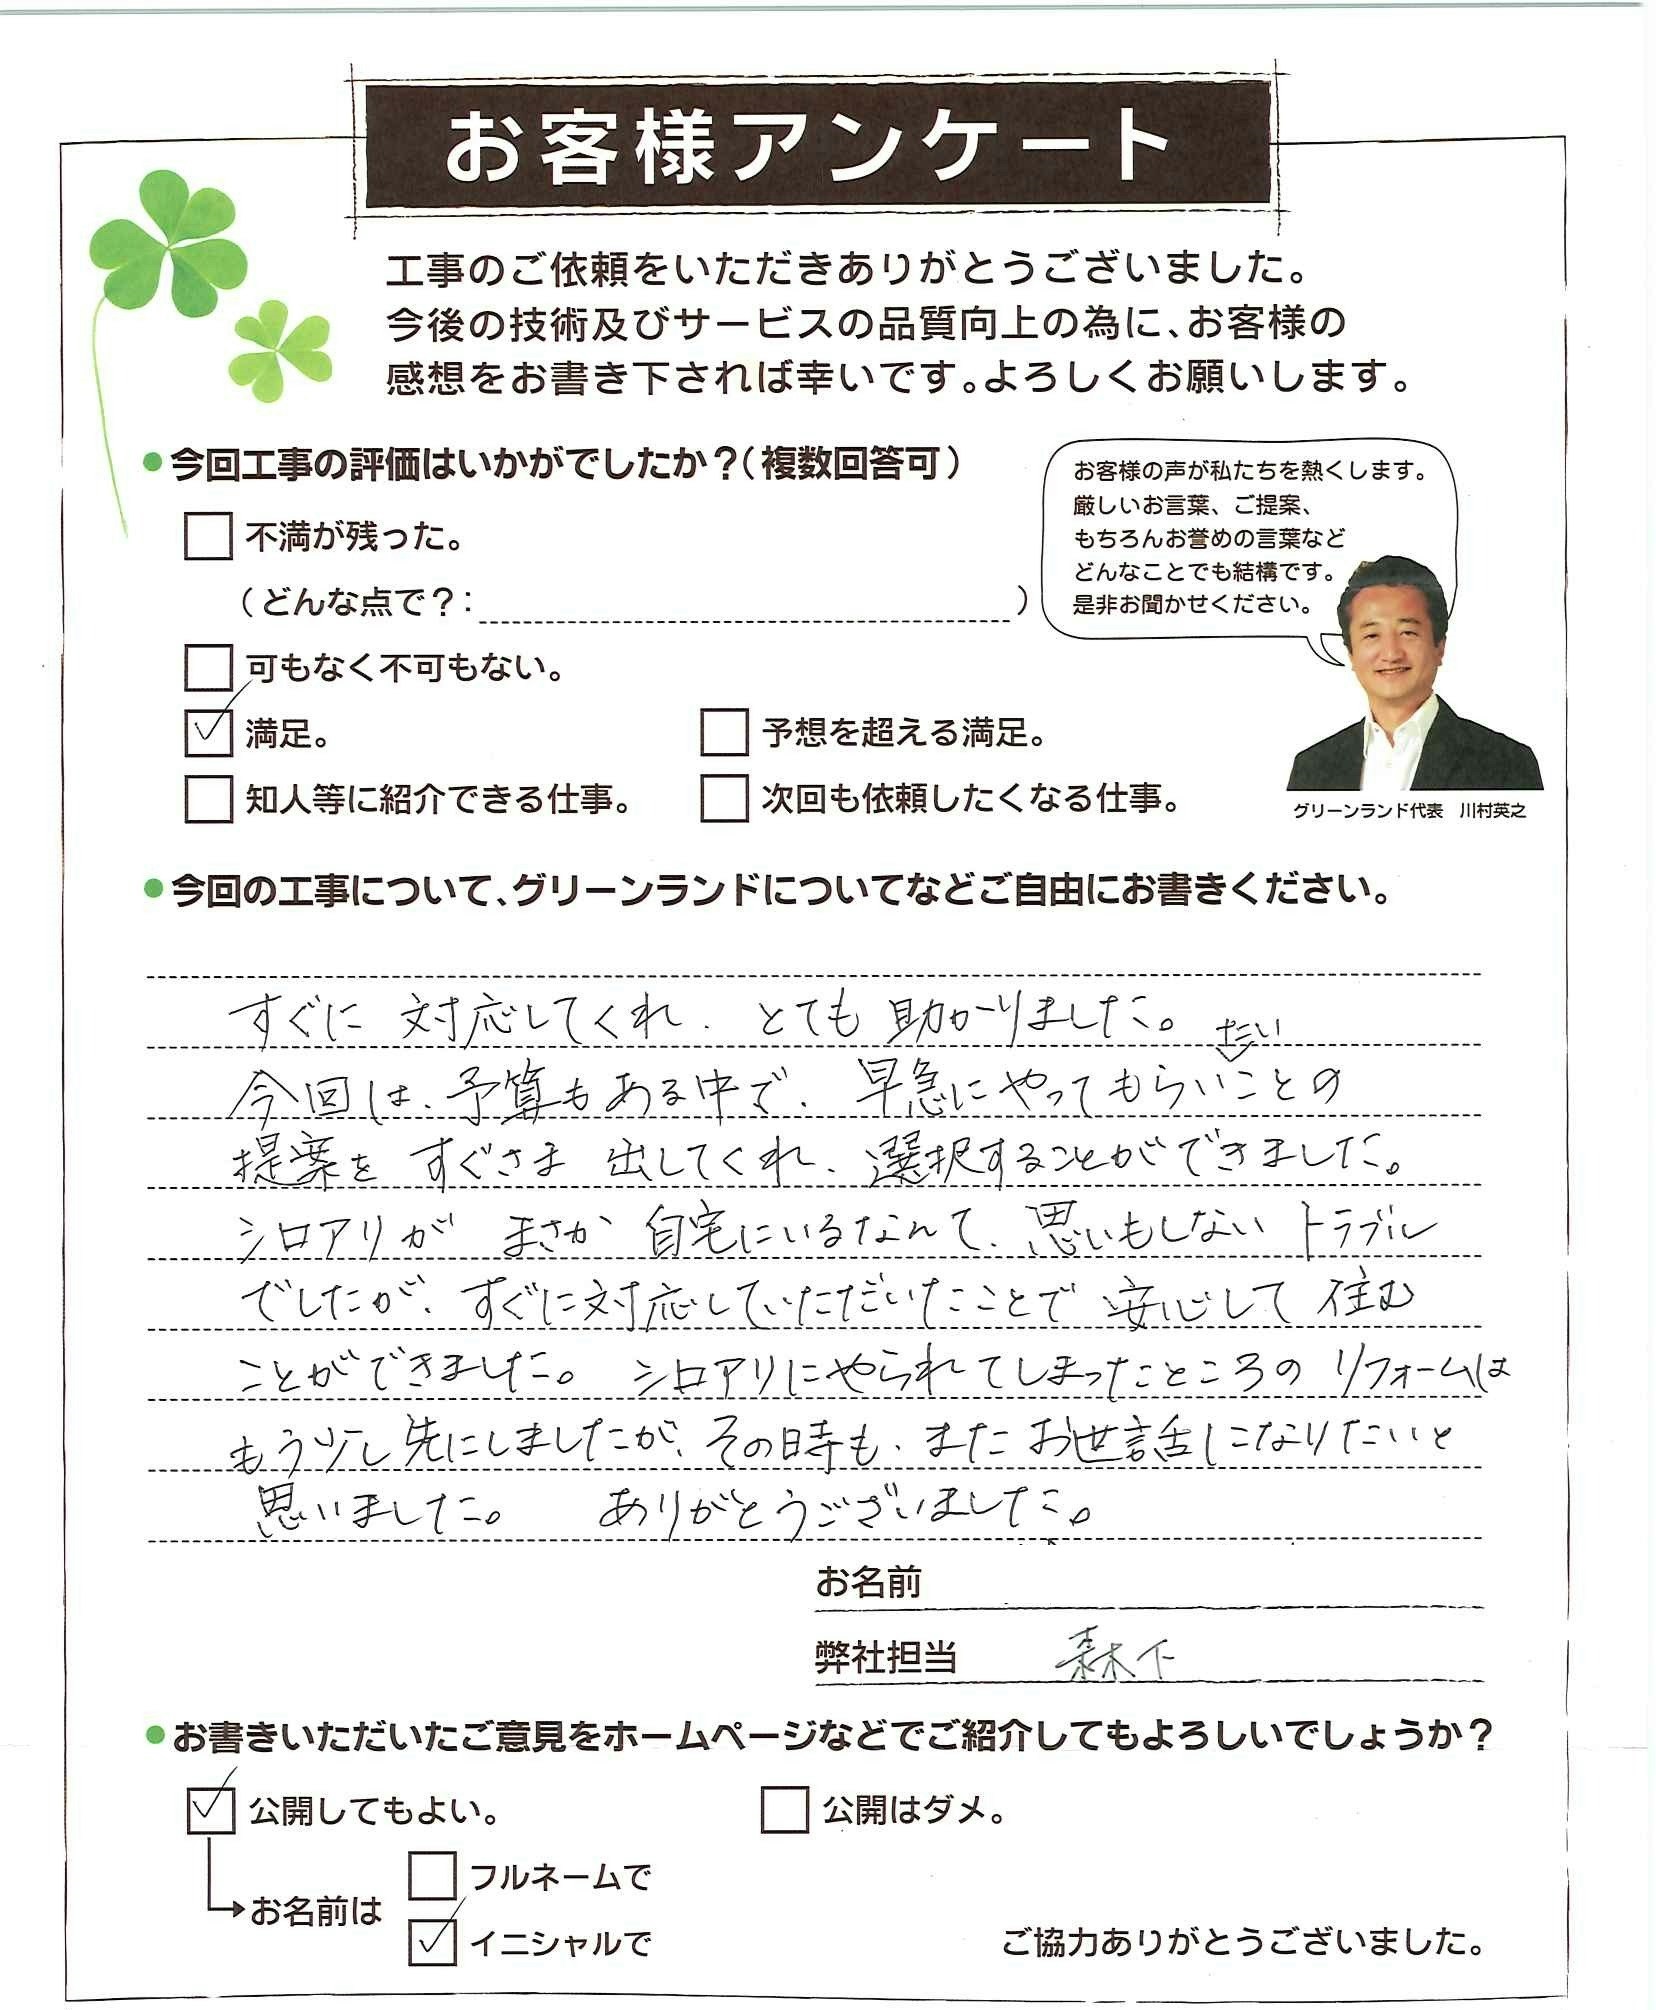 お客様アンケート
工事のご依頼をいただきありがとうございました。
今後の技術及びサービスの品質向上の為に、お客様の
感想をお書き下されば幸いです。よろしくお願いします。
●今回工事の評価はいかがでしたか？（複数回答可）
お客様の声が私たちを熱くします。
厳しいお言葉、ご提案、
もちろんお誉めの言葉など
どんなことでも結構です。
是非お聞かせください。
不満が残った。
（どんな点で？：　）
可もなく不可もない。
満足。
予想を超える満足。
知人等に紹介できる仕事。
次回も依頼したくなる仕事。
グリーンランド代表　川村英之
●今回の工事について、グリーンランドについてなどご自由にお書きください。
すぐに 対応してくれ、とても 助かりました。
たい
今回は、予算もある中で、早急にやってもらいことの
提案を すぐさま 出してくれ、選択することができました。
シロアリが まさか 自宅にいるなんて、思いもしない トラブル
でしたが、すぐに対応していただいたことで 安心して 住む
ことができました。 シロアリにやられてしまったところの リフォームは
もう少し先にしましたが、その時も、また お世話になりたいと
思いました。 ありがとうございました。
お名前
弊社担当 森下
●お書きいただいたご意見をホームページなどでご紹介してもよろしいでしょうか？
公開してもよい。
公開はダメ。
お名前は
フルネームで
イニシャルで
ご協力ありがとうございました。